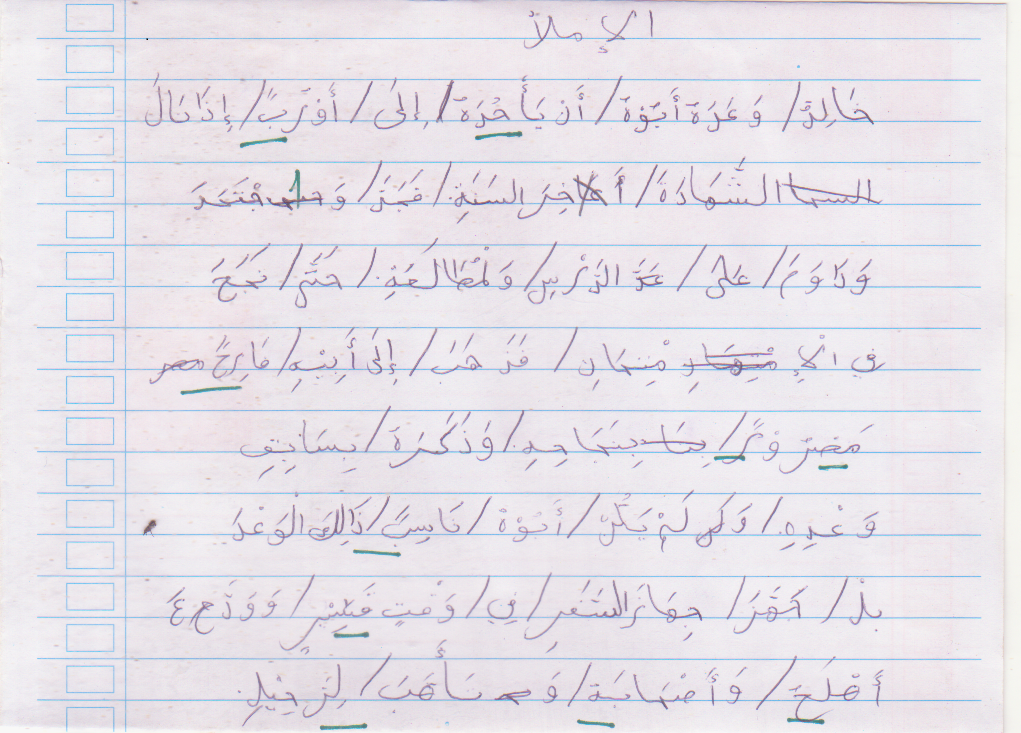 الإملأ
خَالِدٌ/ وَعَدَهُ أَبُوهُ/ أَنْ يَأَخُذَهُ/ إِلىَ/ أُوْرُبَّ/ إِذَا نَالَ
الشَّهَادَةَ/ أَخِرَ السَنَةِ/ فَجَدَّ/ وَجْتَهَدَ
وَدَاوَمَ/ عَلىَ/ الدَّرْسِ/ وَلْمُطَالَعَةِ/ حَتَّى/ نَجَحَ
فِي الْإِ مْتِحَانِ/ فَذَهَبَ/ إِلىَ أَبِيْهِ/ فَارِحً
مَصْرُوْرً/ بِنَجَاحِهِ/ وَذَكَّرَهُ/ بِسَابِقِ
وَعْدِهِ/ وَلَمْ يَكُنْ/ أَبُوْهُ/ نَاسِيًّ/ ذَالِكَ الْوَعْدَ
بلْ/ جَهَّزَ/ جِهَازَ السَفَرِ/ فِي/ وَقْتٍ قَصِيْرٍ/ وَوَدَّع عَ
أَهْلَهُ/ وَأَصْحَابَهُ/ وَ تَأَهَبَ/ لِرَّحِيْلِ